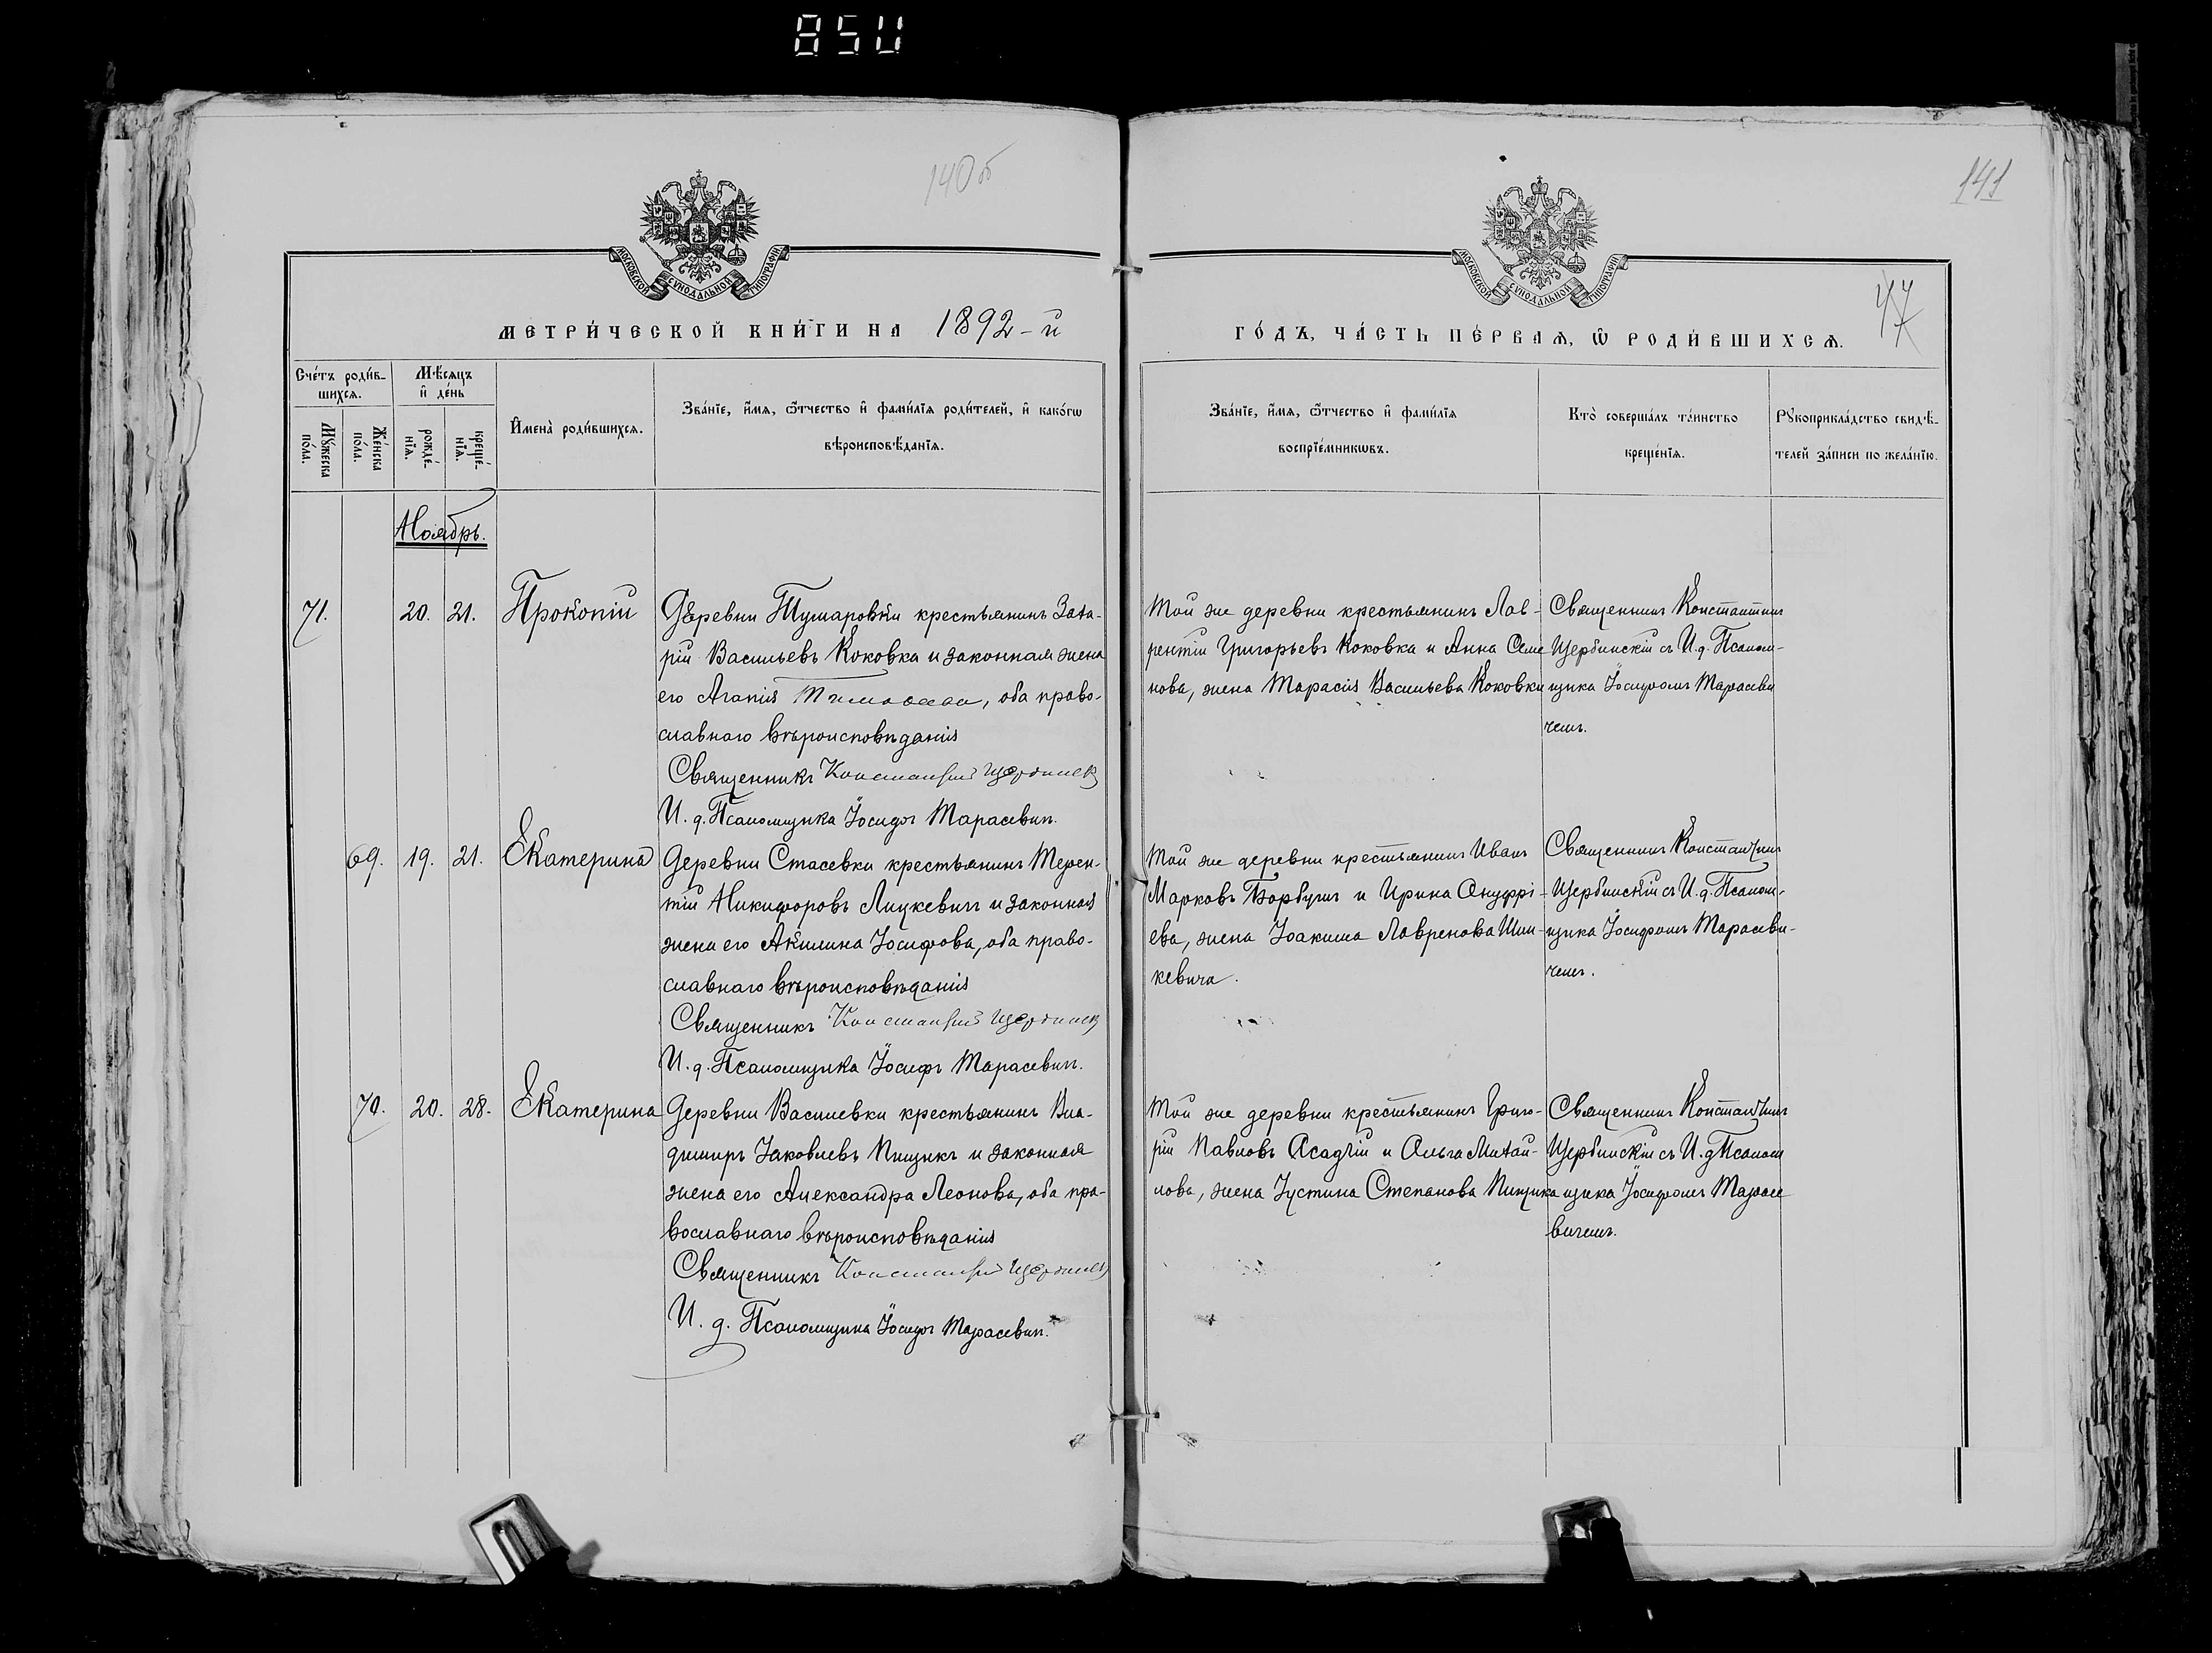 85U
140 об
141
МОСКОВСКОЙ СѴНОДАЛЬНОЙ ТИПОГРАФІИ
МОСКОВСКОЙ СѴНОДАЛЬНОЙ ТИПОГРАФІИ
47
МЕТРИ́ЧЕСКОЙ КНИ́ГИ НА 1892-й
ГО́ДЪ, ЧА́СТЬ ПЕ́РВАѦ, Ѡ҆ РОДИ́ВШИХСѦ.
Сче́тъ роди́в-
шихсѧ.
Мꙋ́жеска по́ла.
Же́нска по́ла.
Мѣ́сѧцъ
и҆ де́нь
рожде́-
нїѧ.
креще́-
нїѧ.
И҆мена̀ роди́вшихсѧ.
Зва́нїе, и҆́мѧ, ѻ҆́тчество и҆ фами́лїѧ роди́телей, и҆ како́гѡ
вѣроисповѣ́данїѧ.
Зва́нїе, и҆́мѧ, ѻ҆́тчество и҆ фами́лїѧ
воспрїе́мникѡвъ.
Кто̀ соверша́лъ та́инство
креще́нїѧ.
Рꙋкоприкла́дство свидѣ́-
телей за́писи по жела́нїю.
Ноябрь.
71. 20. 21. Прокопій
Деревни Тумаровки крестьянинъ Заха-
рій Васильевъ Коковка и законная жена
его Агапія, оба право-
славнаго вѣроисповѣданія
Священникъ Константинъ Щербинск
И. д. Псаломщика Іосифъ Тарасевич.
Той же деревни крестьянинъ Лав-
рентій Григорьевъ Коковка и Анна Семе
нова, жена Тарасія Васильева Коковки
Священник Константин
Щербинскій съ И. д. Псалом-
щика Іосифомъ Тарасеви
чемъ.
69. 19. 21. Екатерина
Деревни Стасевки крестьянинъ Терен-
тій Никифоровъ Лицкевич и законная
жена его Акилина Іосифова, оба право-
славнаго вѣроисповѣданія
Священникъ Константинъ Щербинск
И. д. Псаломщика Іосифъ Тарасевич.
Той же деревни крестьянинъ Иванъ
Марковъ Борбуш и Ирина Онуфрі-
ева, жена Іоакима Лавренова Шин-
кевича.
Священник Константин
Щербинскій съ И. д. Псалом-
щика Іосифомъ Тарасеви-
чемъ.
70. 20. 28. Екатерина
Деревни Василевки крестьянинъ Вла-
димиръ Іаковлевъ Пищикъ и законная
жена его Александра Леонова, оба пра-
вославнаго вѣроисповѣданія
Священникъ Константинъ Щербинск
И. д. Псаломщика Іосифъ Тарасевич.
Той же деревни крестьянинъ Григо-
рій Павловъ Асадчій и Ольга Михаи-
лова, жена Іустина Степанова Пищика
Священник Константин
Щербинскій съ И. д Псалом
щика Іосифомъ Тарасе
вичемъ.